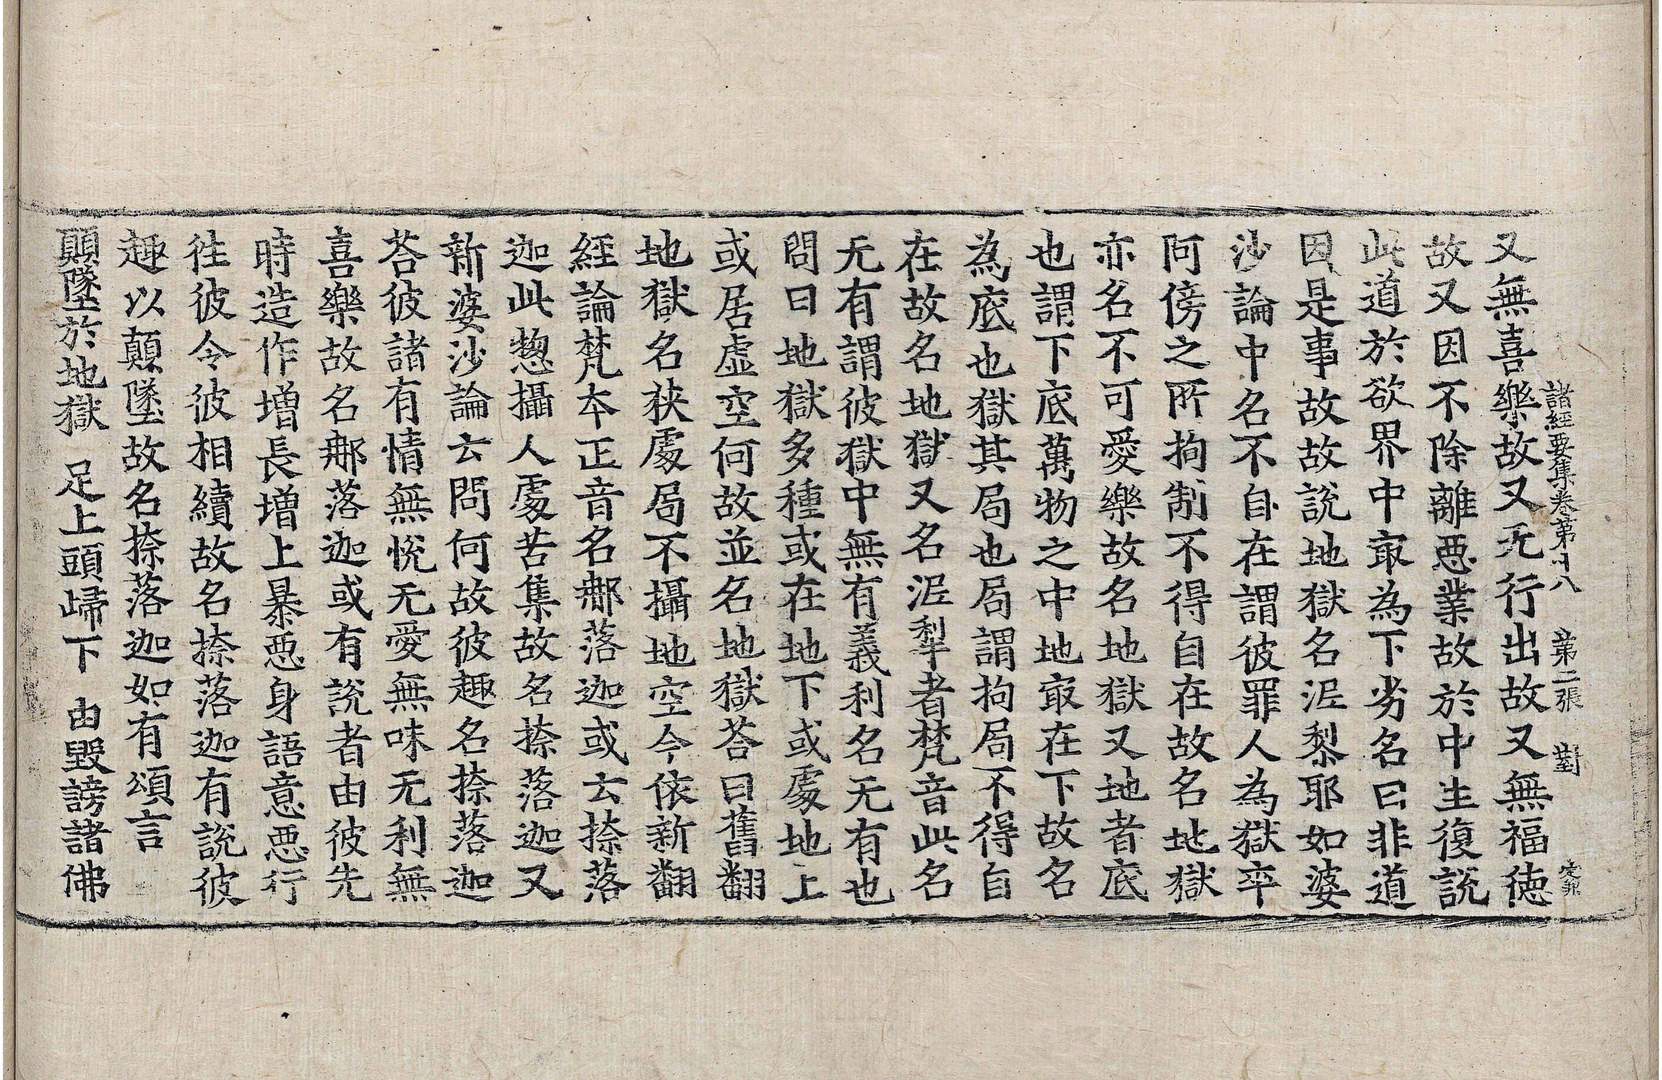 諸經要集卷第十八 第二張 對
又無喜樂故又无行出故又無福德
故又因不除離惡業故於中生復說
此道於欲界中㝡為下劣名曰非道
因是事故故說地獄名泥梨耶如婆
沙論中名不自在謂彼罪人為獄卒
阿傍之所拘制不得自在故名地獄
亦名不可愛樂故名地獄又地者底
也謂下底萬物之中地㝡在下故名
為底也獄其局也局謂拘局不得自
在故名地獄又名泥犁者梵音此名
无有謂彼獄中無有義利名无有也
問曰地獄多種或在地下或處地上
或居虛空何故並名地獄荅曰舊翻
地獄名狹處局不攝地空今依新翻
經論梵夲正音名那落迦或云捺落
迦此揔攝人處苦集故名捺落迦又
新婆沙論云問何故彼趣名捺落迦
荅彼諸有情無悅无愛無味无利無
喜樂故名那落迦或有說者由彼先
時造作增長增上暴惡身語意惡行
徃彼令彼相續故名捺落迦有說彼
趣以顛墜故名捺落迦如有頌言
顛墜於地獄 足上頭歸下 由毀謗諸佛